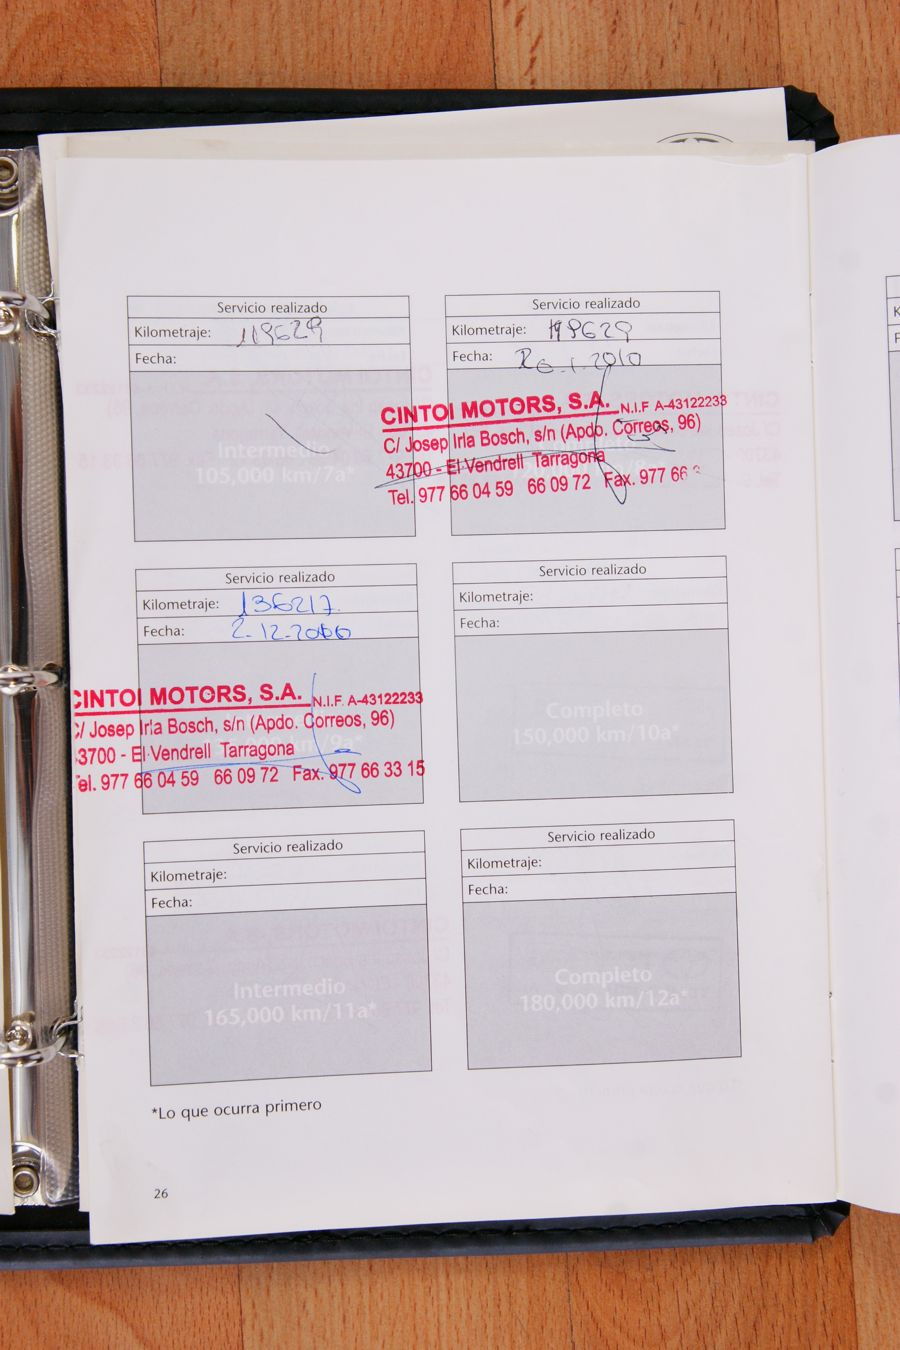 Servicio realizado
Kilometraje: 119629
Fecha:
Intermedio
105,000 km/7a*
Servicio realizado
Kilometraje: 119629
Fecha: 26.1.2010
CINTOI MOTORS, S.A. N.I.F A-43122233
C/ Josep Irla Bosch, s/n (Apdo. Correos, 96)
43700 - El Vendrell Tarragona
Tel. 977 66 04 59 66 09 72 Fax. 977 66 3
Servicio realizado
Kilometraje: 136217.
Fecha: 2.12.
CINTOI MOTORS, S.A. N.I.F. A-43122233
C/ Josep Irla Bosch, s/n (Apdo. Correos, 96)
43700 - El Vendrell Tarragona
Tel. 977 66 04 59 66 09 72 Fax. 977 66 33 15
km/9a*
Servicio realizado
Kilometraje:
Fecha:
Completo
150,000 km/10a*
Servicio realizado
Kilometraje:
Fecha:
Intermedio
165,000 km/11a*
Servicio realizado
Kilometraje:
Fecha:
Completo
180,000 km/12a*
*Lo que ocurra primero
26